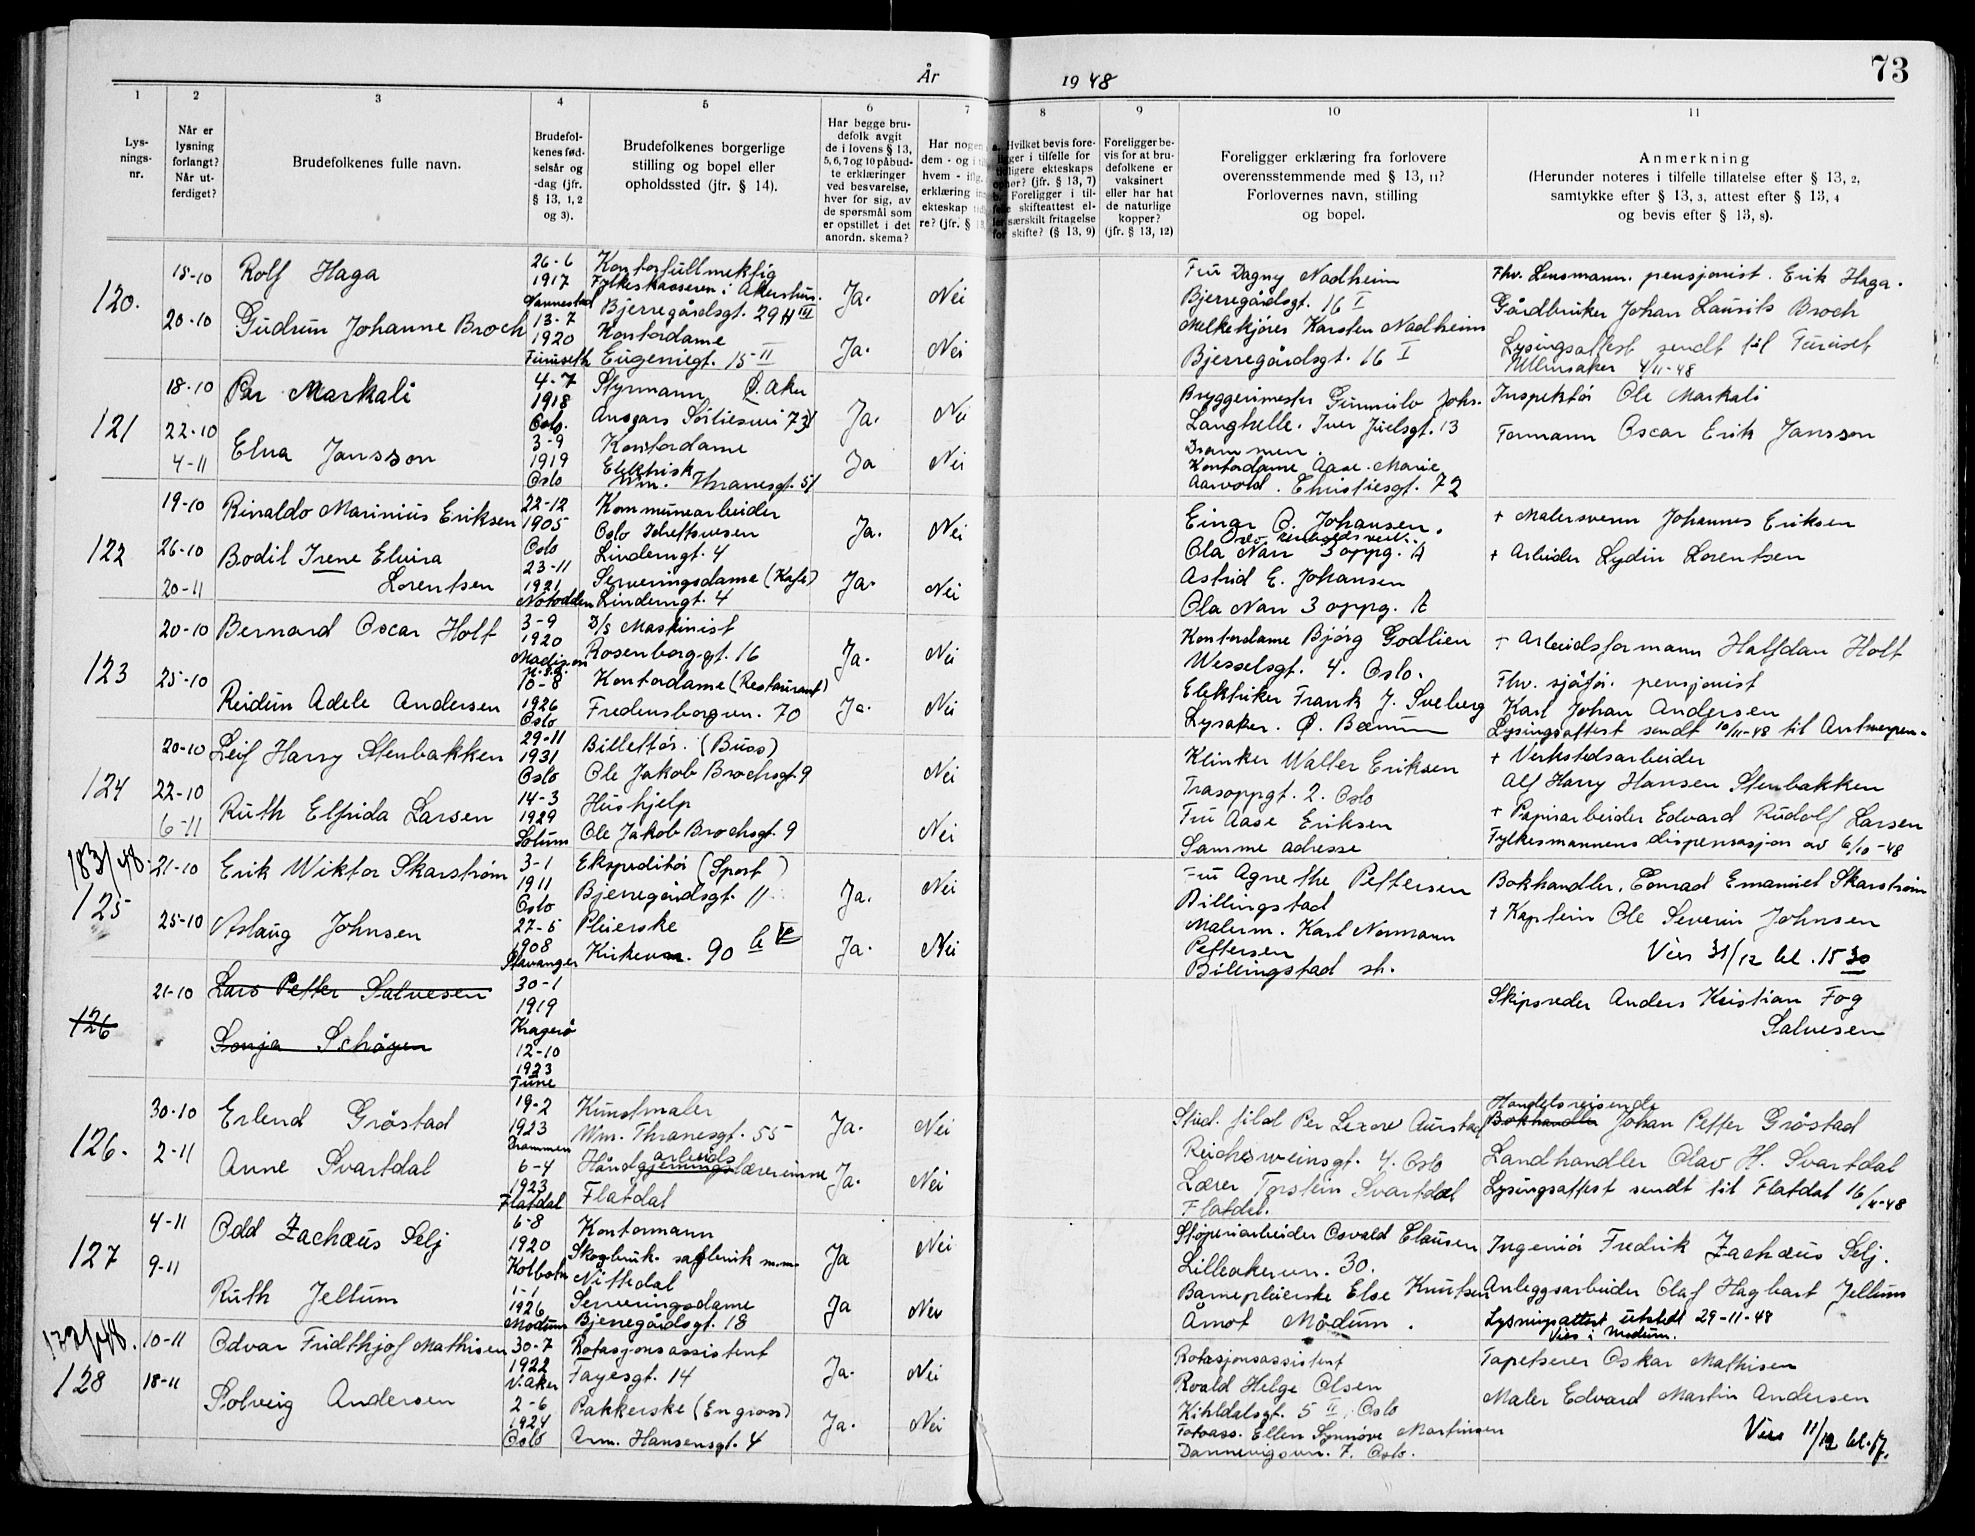 År 1948
73
1
2
3
4
5
6
7
8
9
10
11
Lys-
nings-
nr.
Når er
lysning
forlangt?
Når ut-
ferdiget?
Brudefolkenes fulle navn.
Brudefol-
kenes fød-
selsår og
-dag (jfr.
§ 13, 1, 2
og 3).
Brudefolkenes borgerlige
stilling og bopel eller
opholdssted (jfr. § 14).
Har begge bru-
defolk avgit
de i lovens § 13,
5, 6, 7 og 10 påbud-
te erklæringer
ved besvarelse,
hver for sig, av
de spørsmål som
er opstillet i det
anordn. skema?
Har nogen
dem - og i
hvem - itlg.
erklæring
ekteskap
re? (jfr. §
Hvilket bevis fore-
ligger i tilfelle for
tidligere ekteskaps
ophør? (jfr. § 13, 7)
Foreligger i til-
felle skifteattest el-
ler særskilt fritagelse
for skifte? (§ 13, 9)
Foreligger be-
vis for at bru-
defolkene er
vaksinert
eller har hat
de naturlige
kopper?
(jfr. § 13, 12)
Foreligger erklæring fra forlovere
overensstemmende med § 13, 11?
Forlovernes navn, stilling
og bopel.
Anmerkning
(Herunder noteres i tilfelle tillatelse efter § 13, 2,
samtykke efter § 13, 3, attest efter § 13, 4
og bevis efter § 13, 8).
120.
15-10
20-10
Rolf Haga
Gudrun Johanne Broch
26-6
1917
Nannestad
13-7
1920
Furuseth
Kontorfullmektig
Fylkeskassereren i Akershus.
Bjerregårdsgt. 29 H III
Kontordame
Eugeniegt. 15-II
Ja.
Ja.
Nei
Nei
Fru Dagny Nadheim
Bjerregårdsgt. 16 I
Melkekjører Karsten Nadheim
Bjerregårdsgt. 16 I
Fhv. Lensmann. pensjonist. Erik Haga.
Gårdbruker Johan Laurits Broch
Lysingsattest sendt til Furuset
Ullensaker 4/11-48
121
18-10
22-10
4-11
Per Markali
Elna Jansson
4-7
1918
Oslo.
3-9
1919
Oslo
Styrmann Ø. Aker
Ansgars Sørliesvei 73
Kontordame
Elektrisk
Wm. Thranesgt. 51
Ja.
Ja
Nei
Nei
Bryggerimester Gunnulv Johs.
Langhelle. Iver Juelsgt. 13
Drammen.
Kontordame Aase-Marie
Aarvold. Christiesgt. 72
Inspektør Ole Markali
Formann Oscar Erik Jansson
122
19-10
26-10
20-11
Rinaldo Marinius Eriksen
Bodil Irene Elvira
Lorentsen
22-12
1905
Oslo
23-11
1921
Notodden
Kommunearbeider
Oslo
Linderngt. 4
Serveringsdame (Kafe)
Linderngt. 4
Ja.
Ja.
Nei
Nei
Einar O. Johansen.
Ola Narr 3 oppg. A
Astrid E. Johansen
Ola Narr 3 oppg. A
+ Malersvenn Johannes Eriksen
+ Arbeider Lydin Lorentsen
123
20-10
25-10
Bernard Oscar Holt
Reidun Adele Andersen
3-9
1920
Madison
U.S.A.
10-8
1926
Oslo
D/S Maskinist
Rosenborggt. 16
Kontordame (Restaurant)
Fredensborgvn. 70
Ja.
Ja.
Nei
Nei
Kontordame Bjørg Godlien
Wesselsgt. 4. Oslo.
Elektriker Frank J. Sveberg
Lysaker. Ø. Bærum
+ Arbeidsformann Halfdan Holt
Fhv. sjåfør. pensjonist
Karl Johan Andersen
Lysingsattest sendt 10/11-48 til Antwerpen.
124
20-10
22-10
6-11
Leif Harry Stenbakken
Ruth Elfrida Larsen
29-11
1931
Oslo
14-3
1929
Solum
Billettør. (Buss)
Ole Jakob Brochsgt. 9
Hushjelp
Ole Jakob Brochsgt. 9
Nei
Nei
Klinker Walter Eriksen
Trasoppgt. 2. Oslo
Fru Aase Eriksen
Samme adresse
+ Verkstedsarbeider
Alf Harry Hansen Stenbakken
+ Papirarbeider Edvard Rudolf Larsen
Fylkesmannens dispensasjon av 6/10-48
183/48.
125
21-10
25-10
Erik Wiktor Skarstrøm
Aslaug Johnsen
3-1
1911
Oslo
27-5
1908
Stavanger
Ekspeditør (Sport)
Bjerregårdsgt. 11
Pleierske
Kirkevn. 90 b V
Ja.
Ja.
Nei
Nei
Fru Agnethe Pettersen
Billingstad
Malerm. Karl Normann
Pettersen
Billingstad st.
Bokhandler. Conrad Emanuel Skarstrøm
+ Kaptein Ole Severin Johnsen
Vies 31/12 kl. 15 30
126
21-10
Lars Petter Salvesen
Sonja Schøyen
30-1
1919
Kragerø
12-10
1923
Tune
Skipsreder Anders Kristian Fog
Salvesen
126.
30-10
2-11
Erlend Grøstad
Anne Svartdal
19-2
1923
Drammen
6-4
1923
Flatdal
Kunstmaler
Wm. Thranesgt. 55
arbeids
Håndgjerningslærerinne
Flatdal
Ja.
Ja.
Nei
Nei
Stud. fild Per Aurstad
Reichesweinsgt. 4. Oslo
Lærer Torstein Svartdal
Flatdal.
Handelsreisende
Bokhandler Johan Petter Grøstad
Landhandler Olav H. Svartdal
Lysingsattest sendt til Flatdal 16/11-48
127
4-11
9-11
Odd Zachæus Selj
Ruth Jellum
6-8
1920
Kolbotn
1-1
1926
Modum
Kontormann
Skogbruk. sagbruk m.m.
Nittedal
Serveringsdame
Bjerregårdsgt. 18
Ja
Ja
Nei
Nei
Støperiarbeider Osvald Clausen
Lilleakervn. 30.
Barnepleierske Else Knutsen
Åmot Modum.
Ingeniør Fredrik Zachæus Selj.
Anleggsarbeider Olaf Hagbart Jellum
Lysningsattest utstedt 29-11-48
Vies i Modum.
172/48.
128
10-11
18-11
Odvar Fridthjof Mathisen
Solveig Andersen
30-7
1922
V. Aker
2-6
1924
Oslo
Rotasjonsassistent
Fayesgt. 14
Pakkerske (En gross)
Arm. Hansensgt. 4
Ja.
Ja.
Nei
Nei
Rotasjonsassistent
Roald Helge Olsen
Kihldalsgt. 5 II. Oslo
Fotoass. Ellen Synnøve Martinsen
Dannevigsvn. 7. Oslo.
Tapetserer Oskar Mathisen
Maler Edvard Martin Andersen
Vies 11/12 kl. 17.